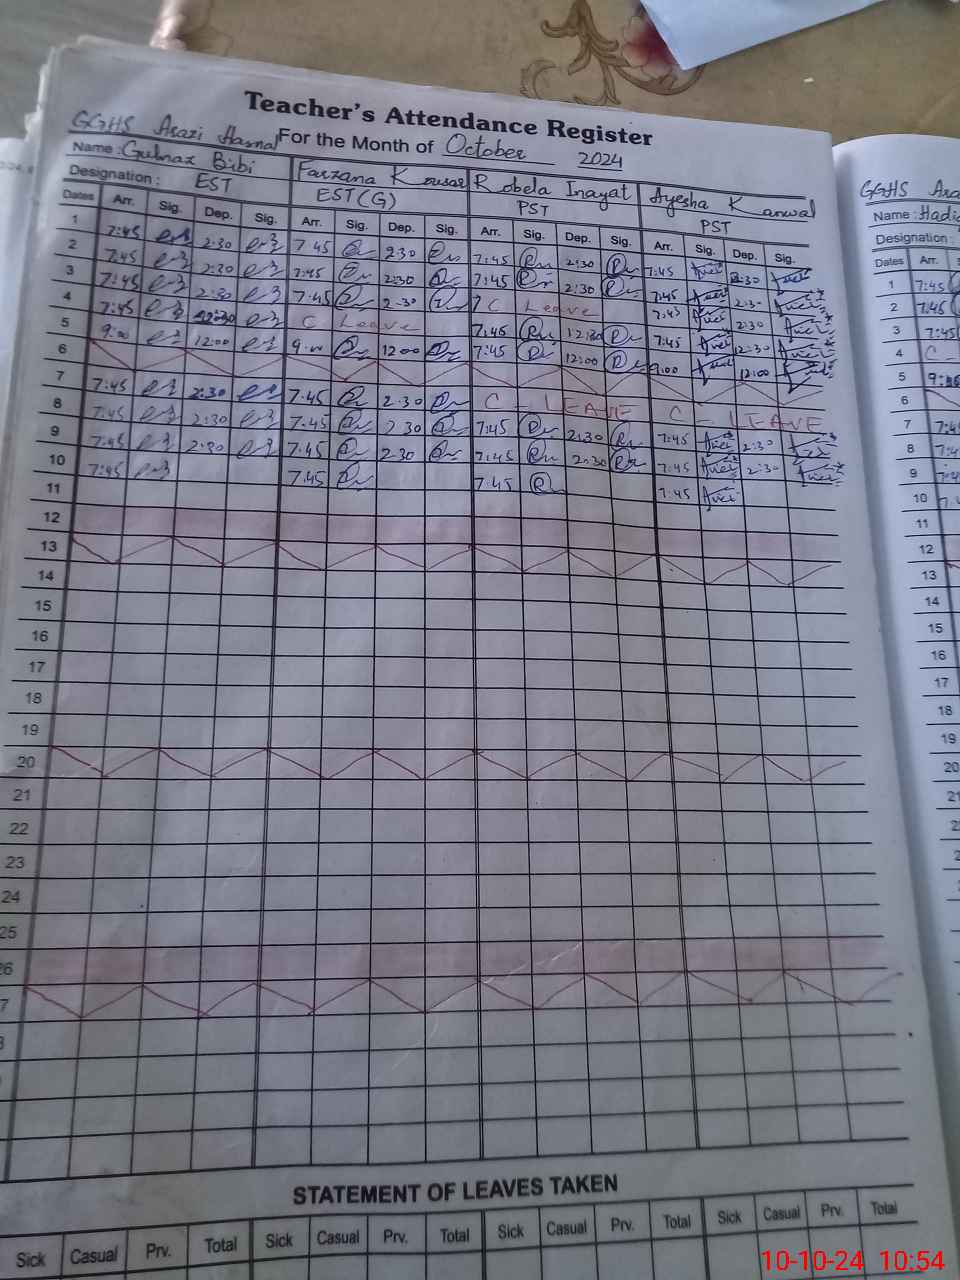 Teacher's Attendance Register
GGHS Arazi Hasnal For the Month of October 2024
Name : Gulnaz Bibi Farzana Kousar Robela Inayat Ayesha Kanwal
Designation : EST EST (G) PST PST
Dates Arr. Sig. Dep. Sig. Arr. Sig. Dep. Sig. Arr. Sig. Dep. Sig. Arr. Sig. Dep. Sig.
1 7:45 2:30 7:45 2:30 7:45 2:30 7:45 2:30
2 7:45 2:30 7:45 2:30 7:45 2:30 7:45 2:30
3 7:45 2:30 7:45 2:30 C Leave 7:45 2:30
4 7:45 12:30 C Leave 7:45 12:30 7:45 12:30
5 9:00 12:00 9:00 12:00 7:45 12:00 9:00 12:00
6
7 7:45 2:30 7:45 2:30 C - LEAVE C - LEAVE
8 7:45 2:30 7:45 2:30 7:45 2:30 7:45 2:30
9 7:45 2:30 7:45 2:30 7:45 2:30 7:45 2:30
10 7:45 7:45 7:45 7:45
11
12
13
14
15
16
17
18
19
20
21
22
23
24
25
26
7
STATEMENT OF LEAVES TAKEN
Sick Casual Prv. Total Sick Casual Prv. Total Sick Casual Prv. Total Sick Casual Prv. Total
GGHS Ara
Name : Hadi
Designation :
Dates Arr.
1 7:45
2 7:45
3 7:45
4 C -
5 9:00
6
7 7:4
8 7:4
9 7:4
10 7.4
11
12
13
14
15
16
17
18
19
20
21
10-10-24 10:54